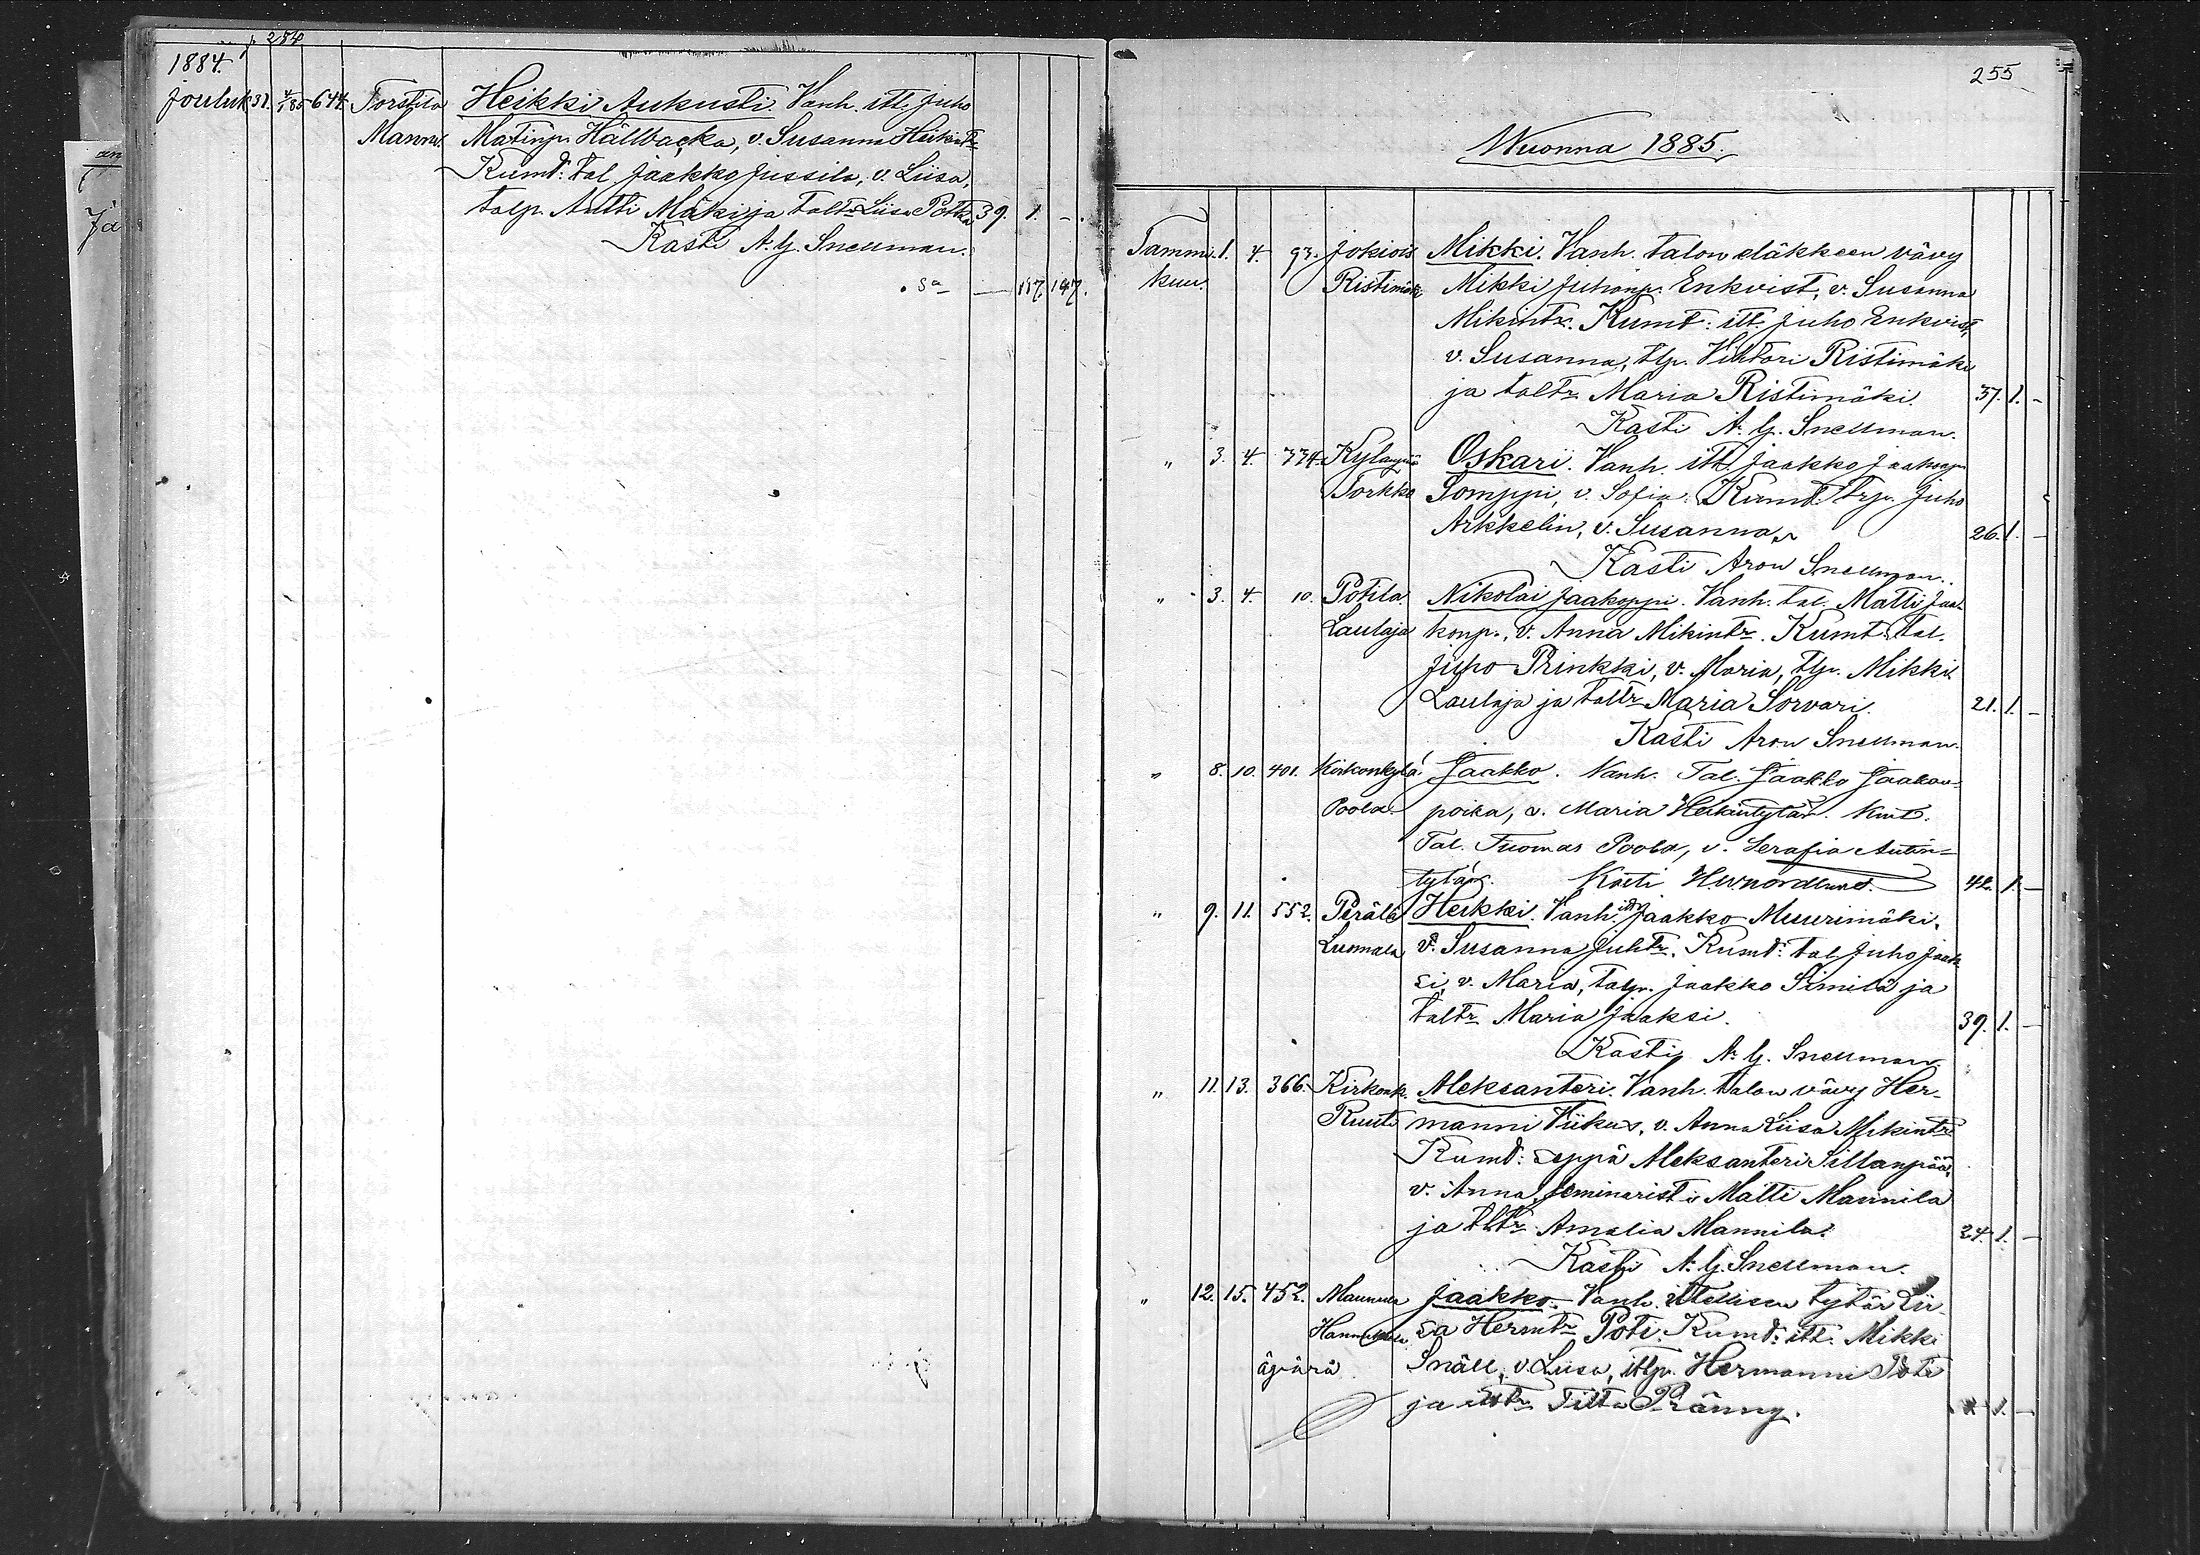 254
1884.
Jouluk. 31. 4/1 85 644. Torstila Heikki Aukusti. Vanh. itt. Juho
Mannu. Matinp. Hällbacka, v. Susanna Heikintr
Kumt: tal Jaakko Jussila, v. Liisa,
talp. Antti Mäki ja taltr Liisa Potka 39. 1. -.
Kasti A. G. Snellman.
Sa — 187. 197.
255
Wuonna 1885.
Tammi- 1. 4. 93. Jokiois Mikki. Vanh. talon eläkkeen vävy
kuu. Ristimäki Mikki Juhonp. Enkvist, v. Susanna
Mikintr. Kumt: itt. Juho Enkvist,
v. Susanna, tlp. Vihtori Ristimäki
ja taltr Maria Ristimäki. 37. 1. -
Kasti A. G. Snellman.
" 3. 4. 774. Kylänpää Oskari. Vanh. itt. Jaakko Jaakonp
Torkko Somppi, v. Sofia. Kumt. Trp. Juho
Arkkelin, v. Susanna 26. 1. -
Kasti Aron Snellman.
" 3. 4. 10. Potila Nikolai Jaakoppi. Vanh. tal. Matti Jaa-
Laulaja konp., v. Anna Mikintr. Kumt. tal.
Juho Prinkki, v. Maria, tlp. Mikki
Laulaja ja taltr Maria Sorvari. 21. 1. -
Kasti Aron Snellman.
" 8. 10. 401. Kirkonkylä Jaakko. Vanh. Tal. Jaakko Jaakon-
Poola poika, v. Maria Heikintytär. Kmt.
Tal. Tuomas Poola, v. Serafia Antin=
tytär. Kasti Hernordlund. 42. 1. -
" 9. 11. 552. Perälä Heikki. Vanh. Jaakko Muurimäki,
Luomala v. Susanna Juhtr. Kumt: tal Juho Jaak-
si, v. Maria, talp. Jaakko Similä ja
taltr Maria Jaaksi. 39. 1. -
Kasti A. G. Snellman
" 11. 13. 366. Kirkonk. Aleksanteri. Vanh. talon vävy Her-
Ruuti manni Viikus, v. Anna Liisa Mikintr
Kumt: seppä Aleksanteri Sillanpää,
v. Anna, seminaristi Matti Mannila
ja tltr Amalia Mannila. 24. 1. -
Kasti A. G. Snellman.
" 12. 15. 452. Maunula Jaakko. Vanh. ittellisen tytär Lii-
sa Hermtr Poti. Kumt: itt. Mikki
äpärä Snäll, v. Liisa, ittp. Hermanni Poti
ja ittr Tilta Pränny. 1. -